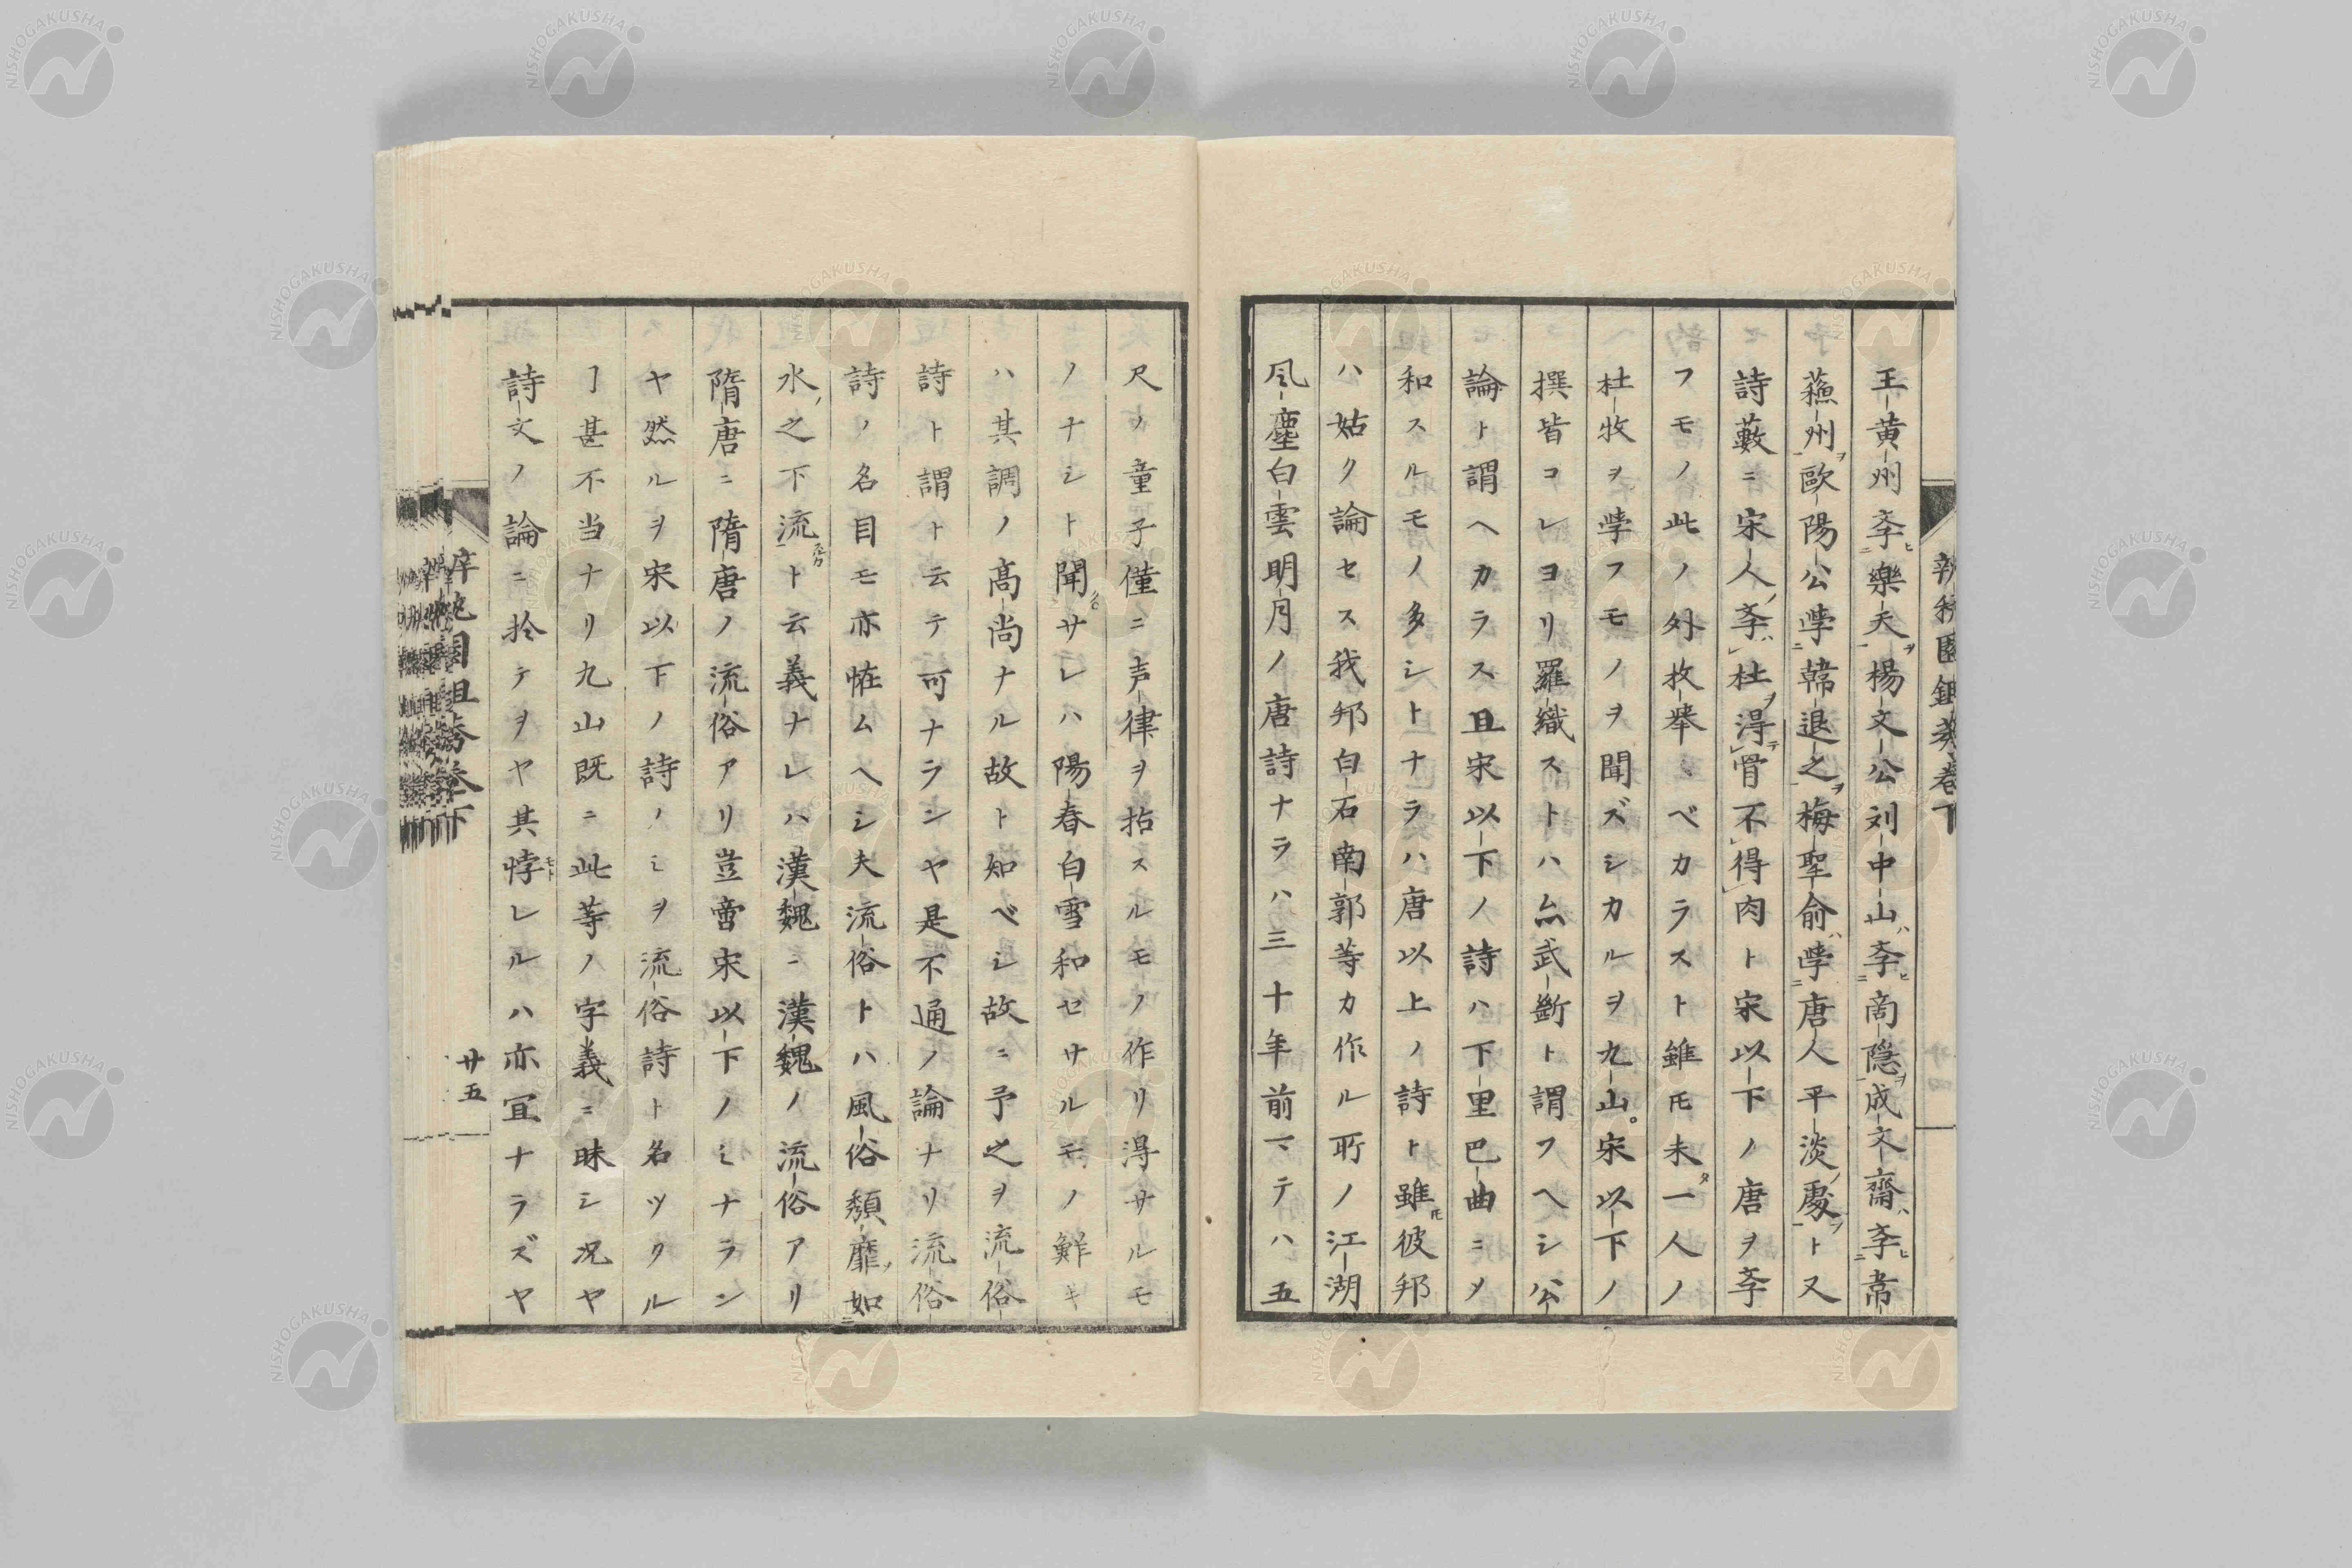 王黄州斈樂天楊文公刘中山斈商隠成文齋斈韋
蘓州歐陽公斈韓退之梅聖俞斈唐人平淡處ト又
詩藪ニ宋人斈杜淂骨不得肉ト宋以下ノ唐ヲ斈
フモノ此ノ外枚挙ミベカラスト雖𪜈未一人ノ
杜牧ヲ斈フモノヲ聞ズシカルヲ九山宋以下ノ
撰皆コレヨリ羅織ストハ亦武斷ト謂フヘシ公
論ト謂ヘカラス且宋以下ノ詩ハ下里巴曲ニメ
和スルモノ多シトナラハ唐以上ノ詩ト雖𪜈彼邦
ハ姑ク論セス我邦白石南郭等カ作ル所ノ江湖
風塵白雲明月ノ唐詩ナラハ三十年前マテハ五
尺ノ童子僅ニ声律ヲ拈スルモノ作リ淂サルモ
ノナシト聞サレハ陽春白雪和セサルモノ鮮キ
ハ其調ノ高尚ナル故ト知ベシ故ニ予之ヲ流俗
詩ト謂ト云テ可ナランヤ是不通ノ論ナリ流俗
詩ノ名目モ亦恠ムヘシ夫流俗トハ風俗頽靡如
水之下流ト云義ナレハ漢魏ニ漢魏ノ流俗アリ
隋唐ニ隋唐ノ流俗アリ豈啻宋以下ノミナラン
ヤ然ルヲ宋以下ノ詩ノミヲ流俗詩ト名ツクル
ヿ甚不当ナリ九山既ニ此等ノ字義ニ昧シ况ヤ
詩文ノ論ニ於テヲヤ其悖レルハ亦冝ナラズヤ
廿五